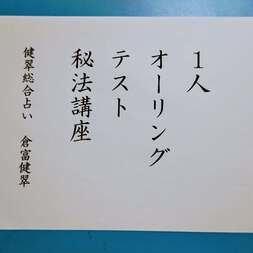 1人
オーリング
テスト
秘法講座
健翠総合占い 倉富健翠